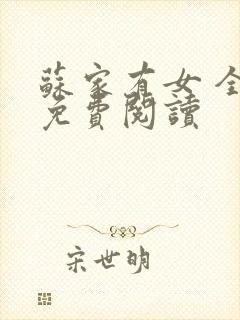 蘇家有女 全
免費閱讀
宋世明